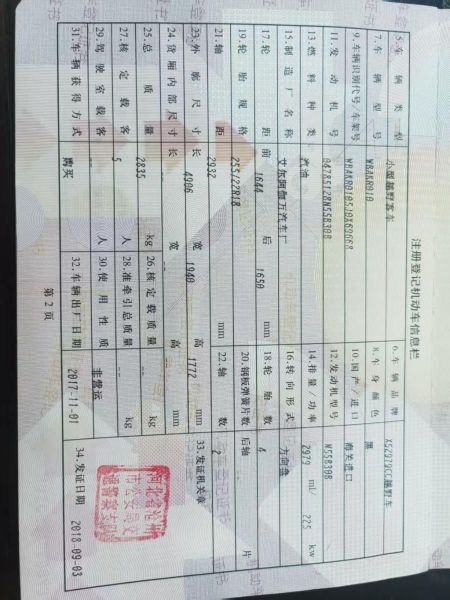 注册登记机动车信息栏
5.车辆类型 小型越野客车 6.车辆品牌 X5 2979CC越野车
7.车辆型号 WBAKR010 8.车身颜色 黑
9.车辆识别代号/车架号 10.国产/进口 海关进口
11.发动机号 04785128N55B30B 12.发动机型号 N55B30B
13.燃料种类 汽油 14.排量/功率 2979 ml/ 225 kw
15.制造厂名称 艾尔阿伽万汽车厂 16.转向形式 方向盘
17.轮距 前 1644 后 1650 mm 18.轮胎数 4
19.轮胎规格 255/??R18 20.钢板弹簧片数 后轴 -- 片
21.轴距 2932 mm 22.轴数 2
23.外廓尺寸 长 4906 宽 1940 高 1772 mm 33.发证机关章
24.货厢内部尺寸 长 -- 宽 -- 高 -- mm
25.总质量 2835 kg 26.核定载质量 -- kg
27.核定载客 5 人 28.准牵引总质量 -- kg
29.驾驶室载客 -- 人 30.使用性质 非营运
31.车辆获得方式 购买 32.车辆出厂日期 2017-11-01 34.发证日期 2018-09-03
河北省沧州
市公安局交
通警察支队
第2页